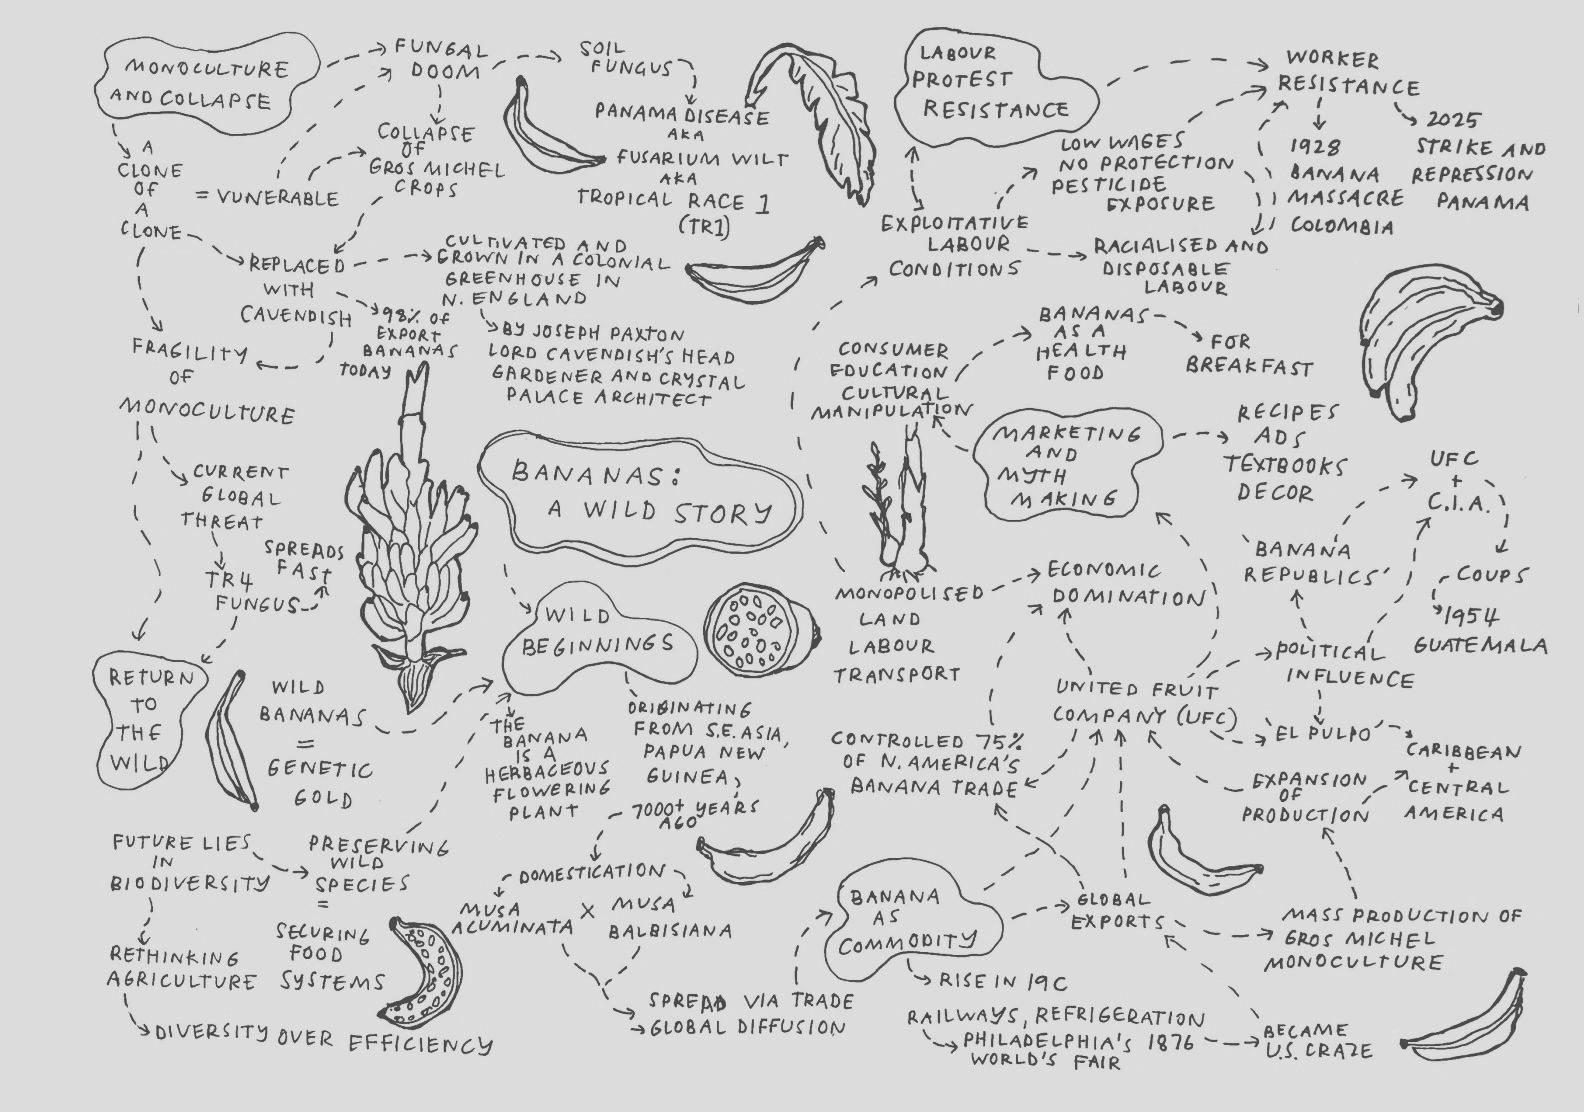 MONOCULTURE
AND COLLAPSE
FUNGAL
DOOM
SOIL
FUNGUS
PANAMA DISEASE
AKA
FUSARIUM WILT
AKA
TROPICAL RACE 1
(TR1)
COLLAPSE
OF
GROS MICHEL
CROPS
A
CLONE
OF
A
CLONE
= VUNERABLE
REPLACED
WITH
CAVENDISH
CULTIVATED AND
GROWN IN A COLONIAL
GREENHOUSE IN
N. ENGLAND
BY JOSEPH PAXTON
LORD CAVENDISH'S HEAD
GARDENER AND CRYSTAL
PALACE ARCHITECT
98% OF
EXPORT
BANANAS
TODAY
FRAGILITY
OF
MONOCULTURE
CURRENT
GLOBAL
THREAT
TR4
FUNGUS
SPREADS
FAST
RETURN
TO
THE
WILD
WILD
BANANAS
=
GENETIC
GOLD
FUTURE LIES
IN
BIODIVERSITY
PRESERVING
WILD
SPECIES
=
SECURING
FOOD
SYSTEMS
RETHINKING
AGRICULTURE
DIVERSITY OVER EFFICIENCY
BANANAS:
A WILD STORY
WILD
BEGINNINGS
THE
BANANA
IS A
HERBACEOUS
FLOWERING
PLANT
ORIGINATING
FROM S.E. ASIA,
PAPUA NEW
GUINEA,
7000+ YEARS
AGO
DOMESTICATION
MUSA
ACUMINATA
X
MUSA
BALBISIANA
SPREAD VIA TRADE
GLOBAL DIFFUSION
BANANA
AS
COMMODITY
RISE IN 19C
RAILWAYS, REFRIGERATION
PHILADELPHIA'S 1876
WORLD'S FAIR
BECAME
U.S. CRAZE
GLOBAL
EXPORTS
MASS PRODUCTION OF
GROS MICHEL
MONOCULTURE
EXPANSION
OF
PRODUCTION
CARIBBEAN
+
CENTRAL
AMERICA
'EL PULPO'
UNITED FRUIT
COMPANY (UFC)
CONTROLLED 75%
OF N. AMERICA'S
BANANA TRADE
ECONOMIC
DOMINATION
MONOPOLISED
LAND
LABOUR
TRANSPORT
POLITICAL
INFLUENCE
'BANANA
REPUBLICS'
UFC
+
C.I.A.
COUPS
1954
GUATEMALA
MARKETING
AND
MYTH
MAKING
RECIPES
ADS
TEXTBOOKS
DECOR
CONSUMER
EDUCATION
CULTURAL
MANIPULATION
BANANAS
AS A
HEALTH
FOOD
FOR
BREAKFAST
LABOUR
PROTEST
RESISTANCE
EXPLOITATIVE
LABOUR
CONDITIONS
LOW WAGES
NO PROTECTION
PESTICIDE
EXPOSURE
RACIALISED AND
DISPOSABLE
LABOUR
WORKER
RESISTANCE
1928
BANANA
MASSACRE
COLOMBIA
2025
STRIKE AND
REPRESSION
PANAMA